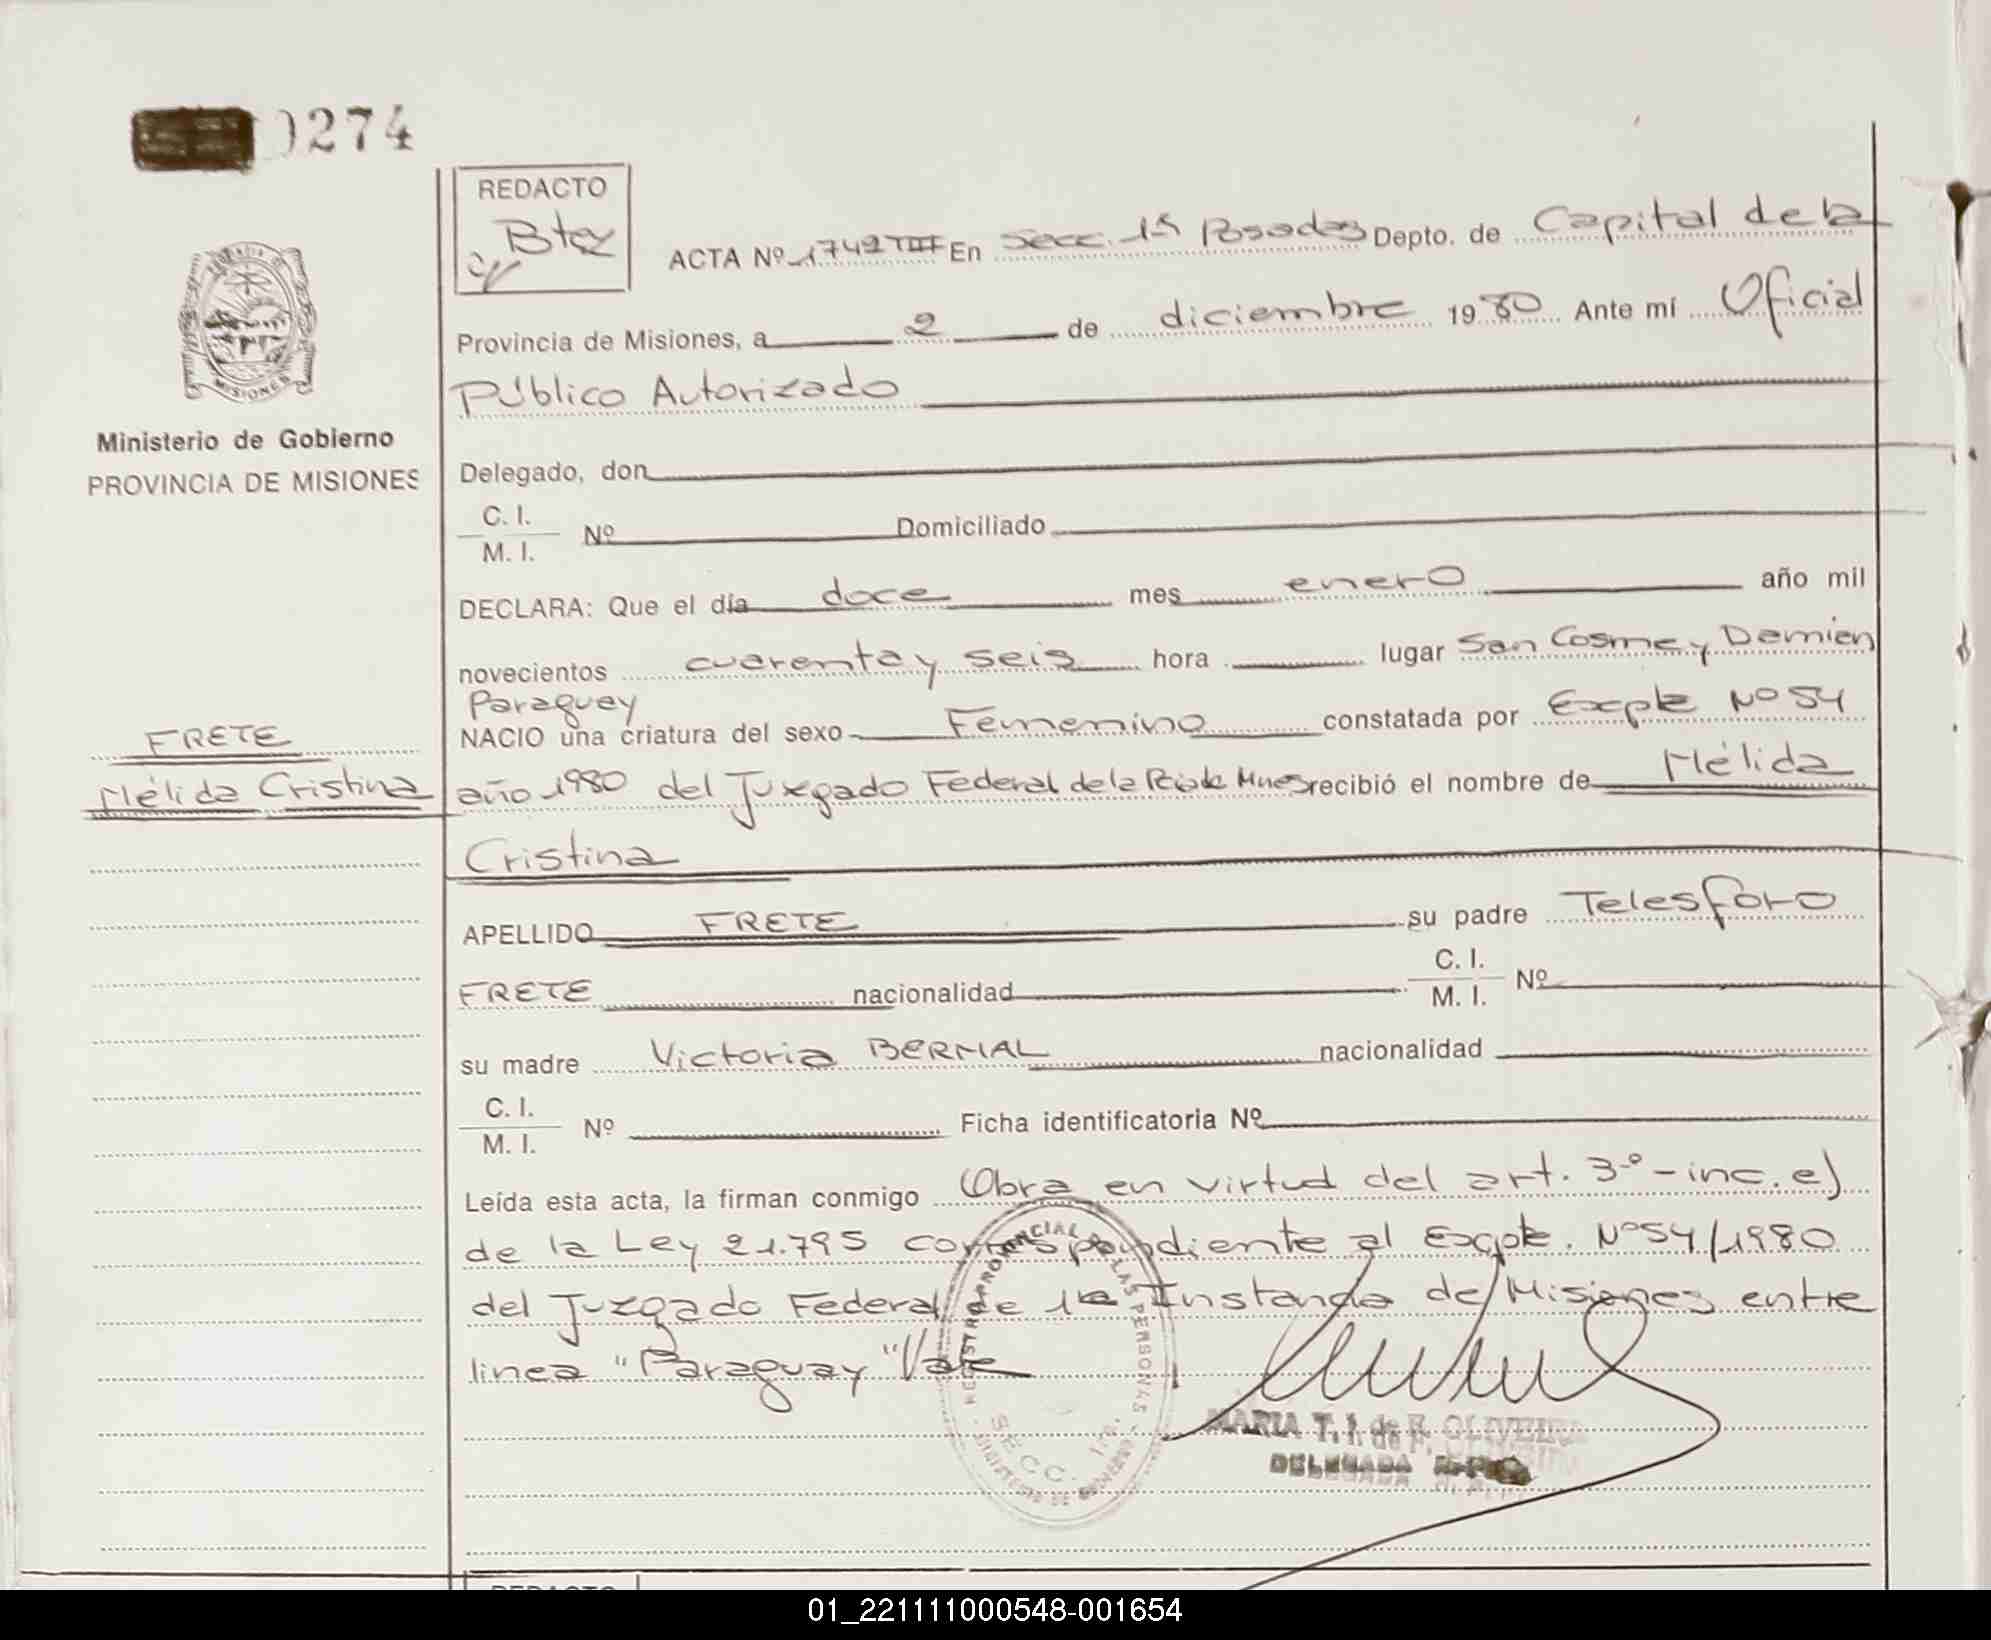 0274
REDACTO
Btez
ACTA Nº 1742 TIII En Secc. 1ª Posadas Depto. de Capital de la
Provincia de Misiones, a 2 de diciembre 1980 Ante mí Oficial
Público Autorizado
Ministerio de Gobierno
PROVINCIA DE MISIONES
Delegado, don
C. I.
M. I. Nº Domiciliado
DECLARA: Que el día doce mes enero año mil
novecientos cuarenta y seis hora lugar San Cosme y Damien
Paraguay
NACIO una criatura del sexo Femenino constatada por Expte Nº 54
FRETE
Mélida Cristina
año 1980 del Juzgado Federal de la Pcia de Mnes recibió el nombre de Mélida
Cristina
APELLIDO FRETE su padre Telesforo
FRETE nacionalidad C. I.
M. I. Nº
su madre Victoria BERNAL nacionalidad
C. I.
M. I. Nº Ficha identificatoria Nº
Leída esta acta, la firman conmigo Obra en virtud del art. 3º - inc. e)
de la Ley 21.795 correspondiente al Expte. Nº 54/1980
del Juzgado Federal de 1ª Instancia de Misiones entre
linea "Paraguay" Vale
REGISTRO PROVINCIAL DE LAS PERSONAS
SECC. 1ra.
MINISTERIO DE GOBIERNO
MARIA T. I. de F. OLIVEIRA
DELEGADA
REDACTO
01_221111000548-001654